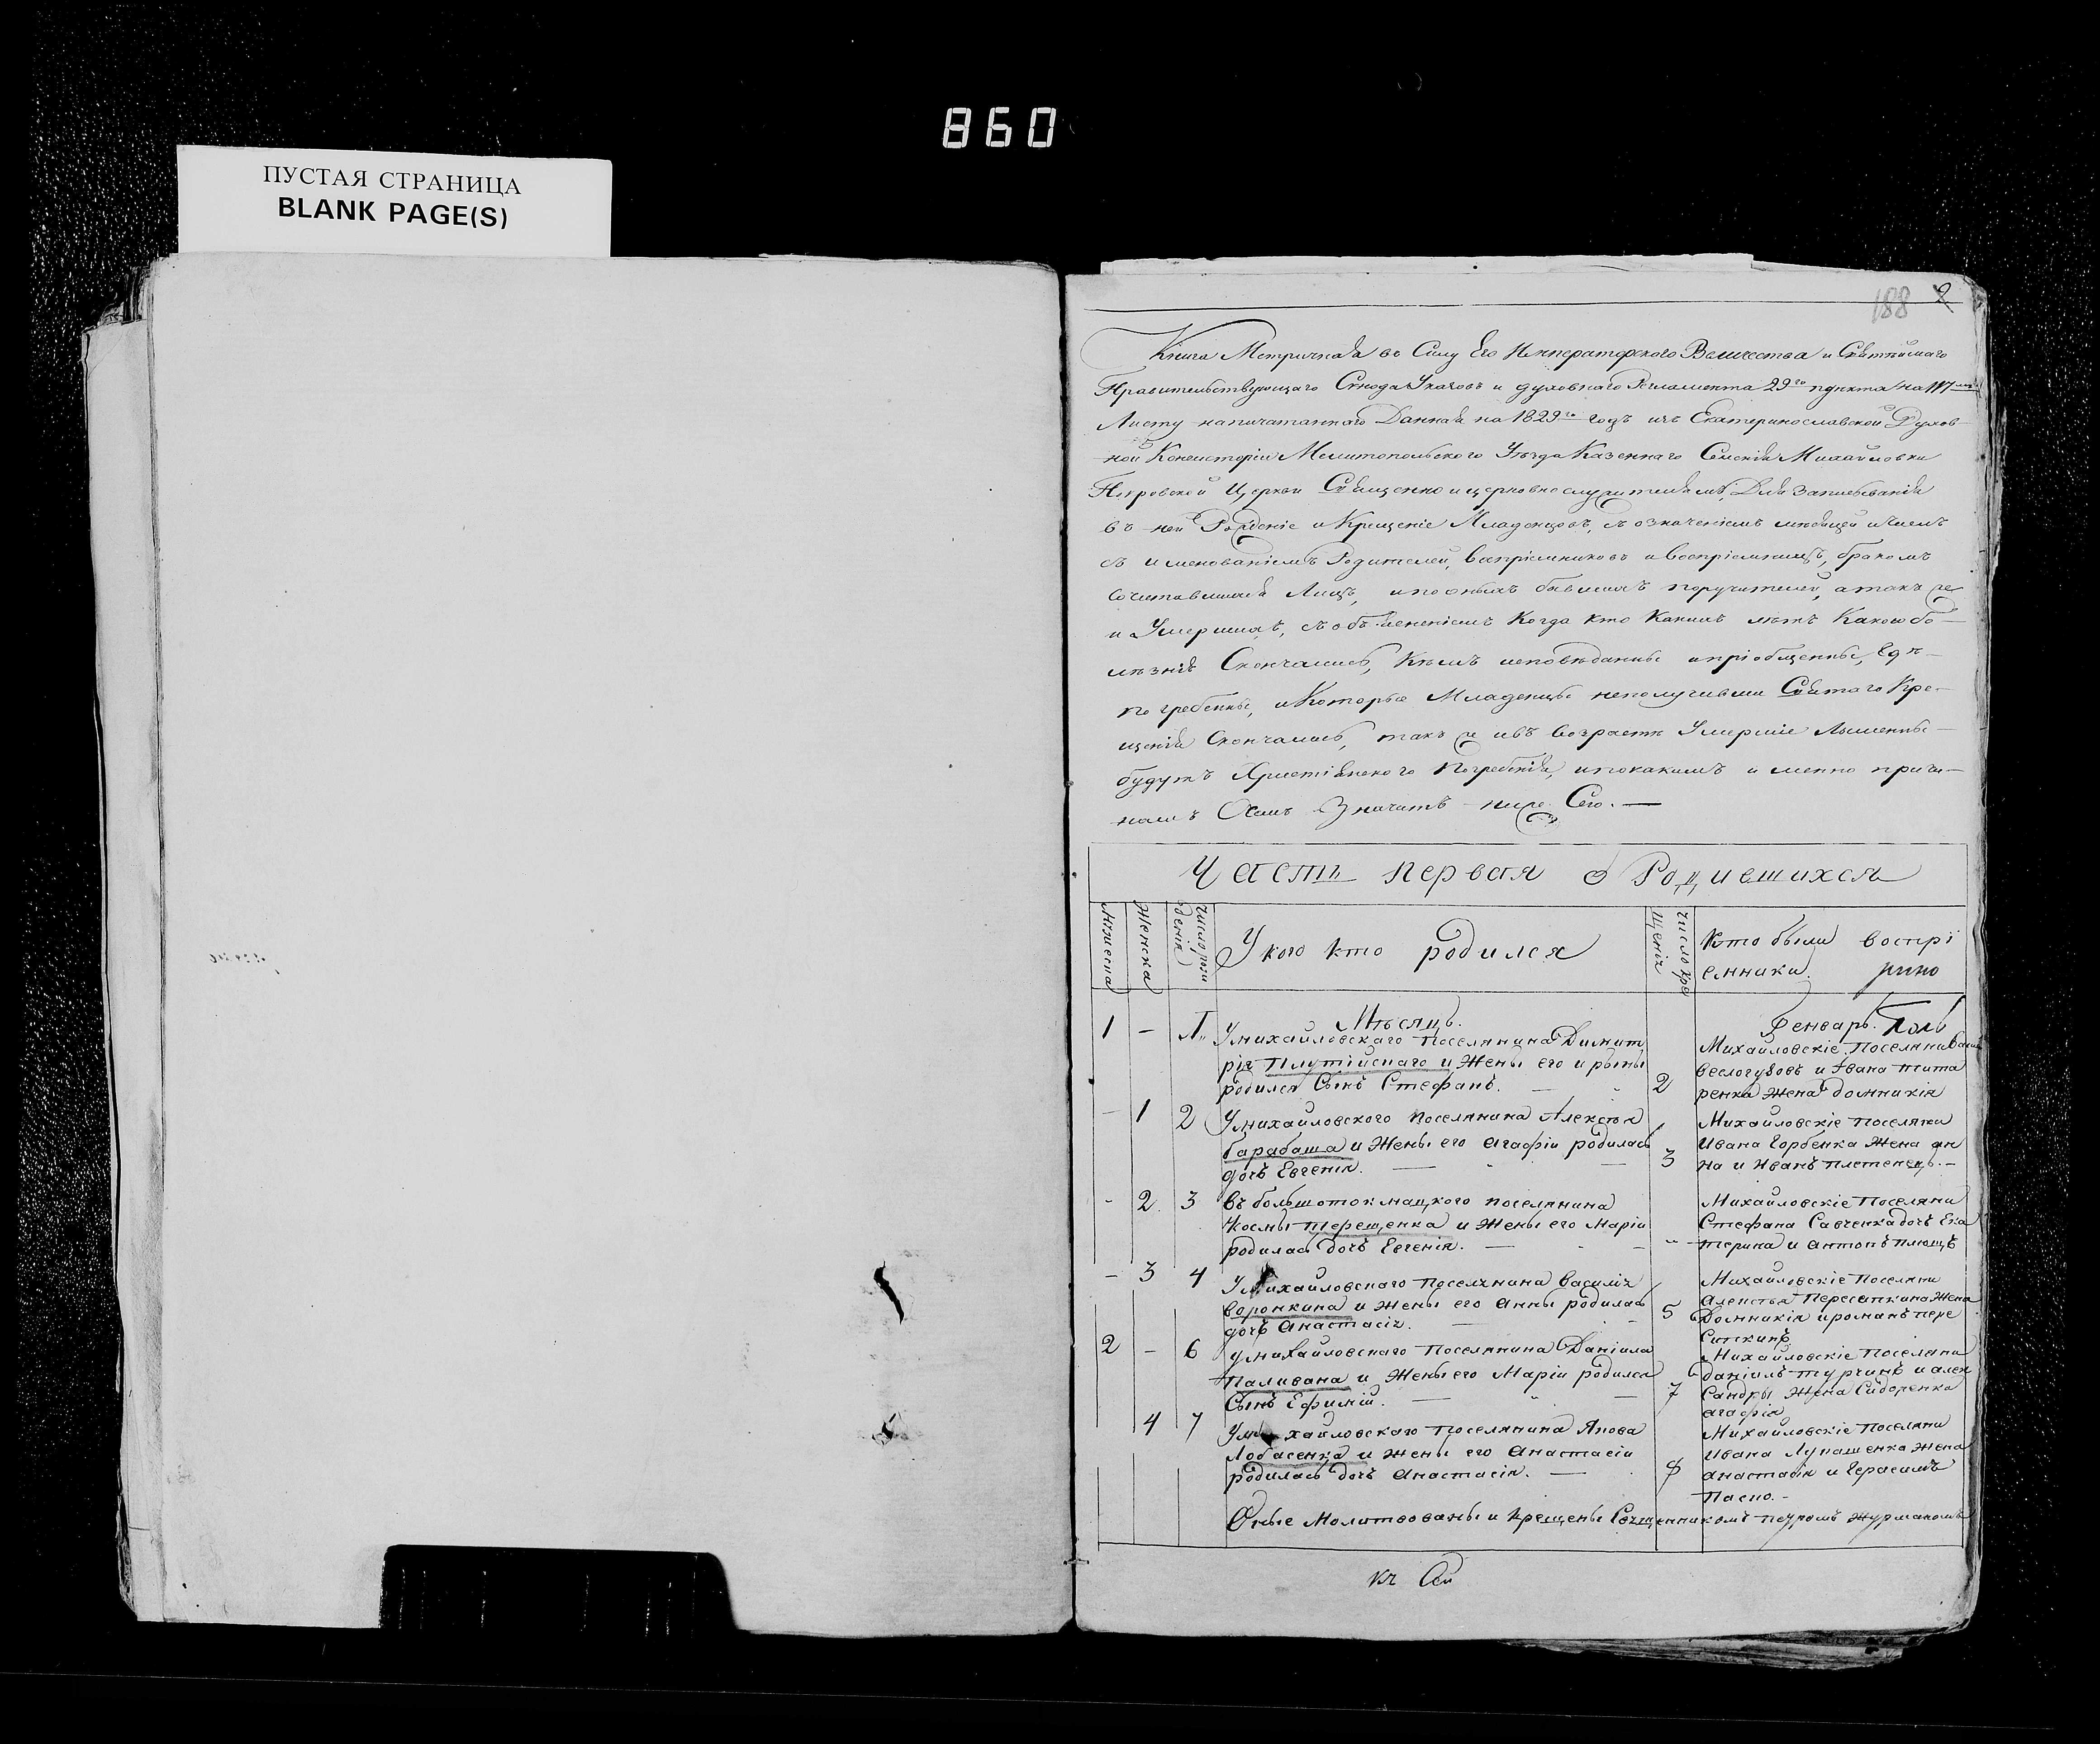 860
ПУСТАЯ СТРАНИЦА
BLANK PAGE(S)
188 2
Книга Метричная въ Силу Его Императорского Величества и Святейшаго
Правительствующаго Сѵнода Указовъ и духовнаго Регламента 29го пункта на 117мъ
Листу напечатаннаго Данная на 1829й годъ изъ Екатеринославской Духов-
ной Консисторіи Мелитопольского Уезда Казеннаго Селенія Михайловки
Покровской Церкви Священно и церковнослужителямъ, Для Записыванія
въ ней Рожденіе и Крещеніе Младенцовъ, съ означеніемъ месяцей и чиселъ
съ именованіемъ Родителей, воспріемниковъ и воспріемницъ, бракомъ
Сочетавшихся Лицъ, и по оныхъ бывшихъ поручителей, а такъ же
и Умершихъ, съ объясненіемъ Когда кто Какихъ летъ Какою бо-
лезнію Скончались, Кемъ исповеданны и пріобщенны, Где-
погребенны, и Которые Младенцы неполучивши Святаго Кре-
щенія Скончались, такъ же и въ возрасте Умершіе Лишенны-
будутъ Христіянского Погребенія, и по какимъ именно причи-
намъ О семъ Значитъ ниже Сего. —
Часть первая о Родившихся
Мужеска
Женска
число рож
денія
У кого кто родился
число кре
щенія
Кто были воспрі
емники
Месяцъ.
Генварь.
1 - 1 У михайловскаго поселянина Димит
рія Плутійскаго и Жены его ирыны
родился Сынъ Стефанъ. —
2
Михайловскіе поселяни Васил
веслогузовъ и Ивана тита
ренка Жена домникія
- 1 2 У михайловского поселянина Алексея
барабаша и Жены его агафіи родилась
дочъ Евгенія. —
3
Михайловскіе поселяни
Ивана Горбенка жена ан
на и Иванъ плетенецъ. -
- 2 3 въ большотокмацкого поселянина
Космы терещенка и Жены его Маріи
родилась дочъ Евгенія. —
Михайловскіе поселяни
Стефана Савченка дочъ Ека
терина и антонъ плющъ
- 3 4 У Михайловскаго поселянина василія
воронкина и жены его анны родилась
дочъ анастасія. —
5
Михайловскіе поселяни
алексея пересипкина жена
Домникія и романъ пере
сипкинъ
2 - 6 У михайловскаго поселянина Даніила
паливана и Жены его Маріи родился
Сынъ Ефимій. —
7
Михайловскіе поселяни
даніилъ турчинъ и алек
сандры Жена Сидоренка
агафія
4 7 У михайловского поселянина Якова
Лобасенка и жены его анастасіи
родилась дочъ анастасія. —
8
Михайловскіе поселяни
Ивана Лупашенка жена
анастасія и Герасимъ
Пасно. -
Оные Молитвованы и Крещены Священникомъ петромъ журманомъ